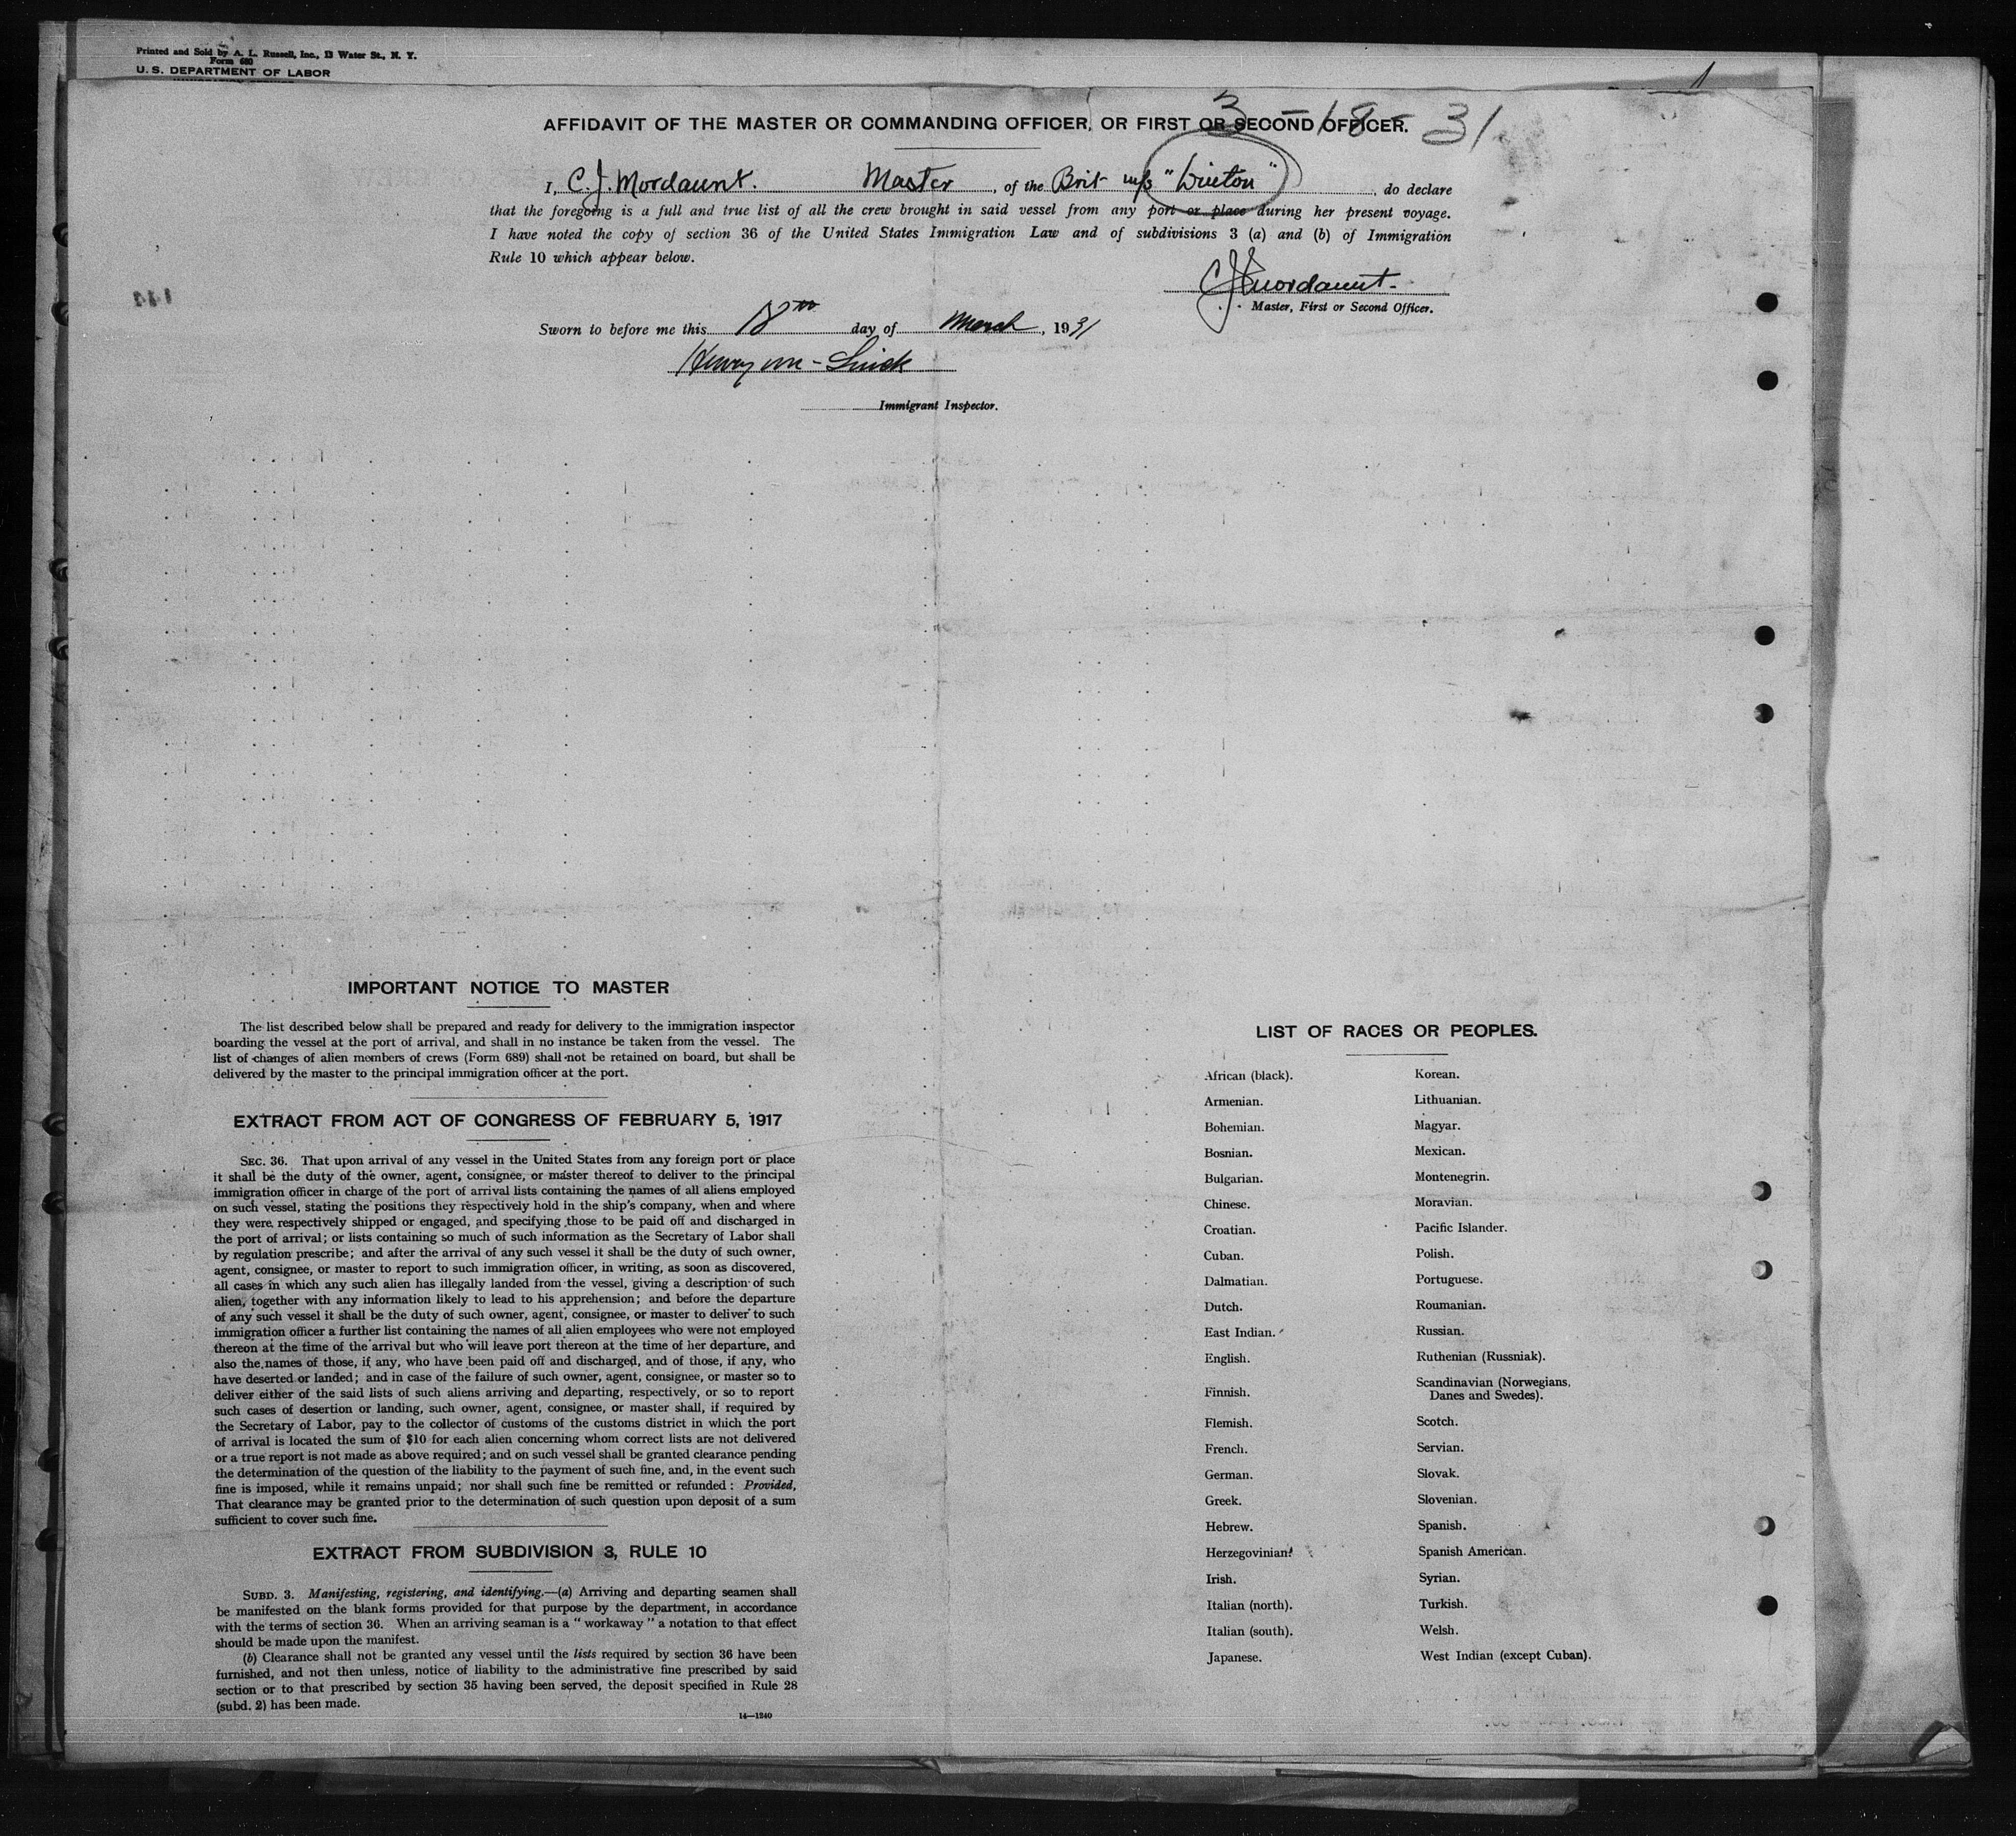 Printed and Sold by A. L. Russell, Inc., 13 Water St., N. Y.
Form 680
U. S. DEPARTMENT OF LABOR
3-18-31
AFFIDAVIT OF THE MASTER OR COMMANDING OFFICER, OR FIRST OR SECOND OFFICER.
I, C. J. Mordaunt. Master, of the Brit m/s, do declare
that the foregoing is a full and true list of all the crew brought in said vessel from any port or place during her present voyage.
I have noted the copy of section 36 of the United States Immigration Law and of subdivisions 3 (a) and (b) of Immigration
Rule 10 which appear below.
C J Mordaunt
Master, First or Second Officer.
Sworn to before me this 18th day of March, 1931
Henry
Immigrant Inspector.
IMPORTANT NOTICE TO MASTER
The list described below shall be prepared and ready for delivery to the immigration inspector
boarding the vessel at the port of arrival, and shall in no instance be taken from the vessel. The
list of changes of alien members of crews (Form 689) shall not be retained on board, but shall be
delivered by the master to the principal immigration officer at the port.
EXTRACT FROM ACT OF CONGRESS OF FEBRUARY 5, 1917
SEC. 36. That upon arrival of any vessel in the United States from any foreign port or place
it shall be the duty of the owner, agent, consignee, or master thereof to deliver to the principal
immigration officer in charge of the port of arrival lists containing the names of all aliens employed
on such vessel, stating the positions they respectively hold in the ship's company, when and where
they were respectively shipped or engaged, and specifying those to be paid off and discharged in
the port of arrival; or lists containing so much of such information as the Secretary of Labor shall
by regulation prescribe; and after the arrival of any such vessel it shall be the duty of such owner,
agent, consignee, or master to report to such immigration officer, in writing, as soon as discovered,
all cases in which any such alien has illegally landed from the vessel, giving a description of such
alien, together with any information likely to lead to his apprehension; and before the departure
of any such vessel it shall be the duty of such owner, agent, consignee, or master to deliver to such
immigration officer a further list containing the names of all alien employees who were not employed
thereon at the time of the arrival but who will leave port thereon at the time of her departure, and
also the names of those, if any, who have been paid off and discharged, and of those, if any, who
have deserted or landed; and in case of the failure of such owner, agent, consignee, or master so to
deliver either of the said lists of such aliens arriving and departing, respectively, or so to report
such cases of desertion or landing, such owner, agent, consignee, or master shall, if required by
the Secretary of Labor, pay to the collector of customs of the customs district in which the port
of arrival is located the sum of $10 for each alien concerning whom correct lists are not delivered
or a true report is not made as above required; and on such vessel shall be granted clearance pending
the determination of the question of the liability to the payment of such fine, and, in the event such
fine is imposed, while it remains unpaid; nor shall such fine be remitted or refunded: Provided,
That clearance may be granted prior to the determination of such question upon deposit of a sum
sufficient to cover such fine.
EXTRACT FROM SUBDIVISION 3, RULE 10
SUBD. 3. Manifesting, registering, and identifying.—(a) Arriving and departing seamen shall
be manifested on the blank forms provided for that purpose by the department, in accordance
with the terms of section 36. When an arriving seaman is a "workaway" a notation to that effect
should be made upon the manifest.
(b) Clearance shall not be granted any vessel until the lists required by section 36 have been
furnished, and not then unless, notice of liability to the administrative fine prescribed by said
section or to that prescribed by section 35 having been served, the deposit specified in Rule 28
(subd. 2) has been made.
14—1240
LIST OF RACES OR PEOPLES.
African (black). Korean.
Armenian. Lithuanian.
Bohemian. Magyar.
Bosnian. Mexican.
Bulgarian. Montenegrin.
Chinese. Moravian.
Croatian. Pacific Islander.
Cuban. Polish.
Dalmatian. Portuguese.
Dutch. Roumanian.
East Indian. Russian.
English. Ruthenian (Russniak).
Finnish. Scandinavian (Norwegians,
Danes and Swedes).
Flemish. Scotch.
French. Servian.
German. Slovak.
Greek. Slovenian.
Hebrew. Spanish.
Herzegovinian. Spanish American.
Irish. Syrian.
Italian (north). Turkish.
Italian (south). Welsh.
Japanese. West Indian (except Cuban).